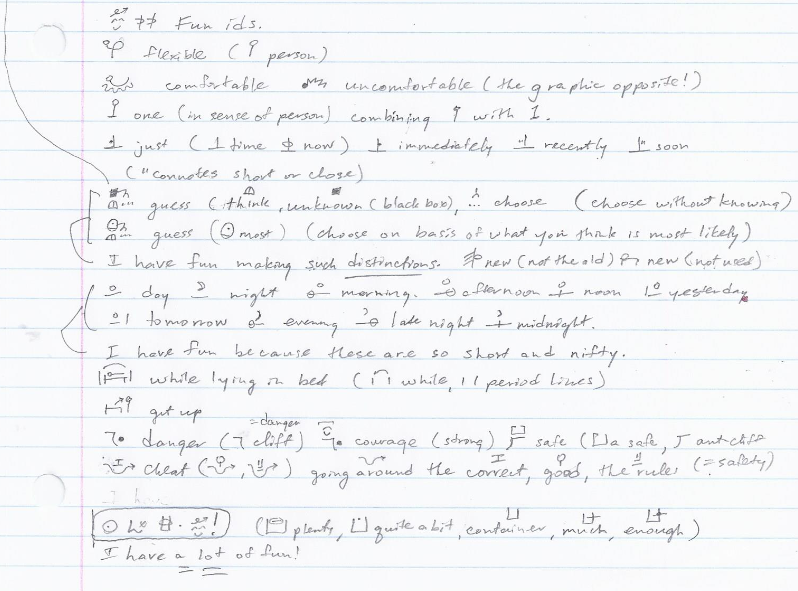 Fun ids.
flexible ( person)
comfortable uncomfortable (the graphic opposite!)
one (in sense of person) combining with 1.
just ( time now) immediately recently soon
(" connotes short or close)
guess (think, unknown (black box), choose (choose without knowing)
guess (most) (choose on basis of what you think is most likely)
I have fun making such distinctions. new (not the old) new (not used)
day night morning. afternoon noon yesterday
tomorrow evening late night midnight.
I have fun because these are so short and nifty.
while lying in bed ( while, | | period lines)
get up
= danger
danger ( cliff) courage (strong) safe ( a safe, anti cliff
cheat ( , ) going around the correct, good, the rules (= safety)
I have
! ( plenty, quite a bit, container, much, enough)
I have a lot of fun!